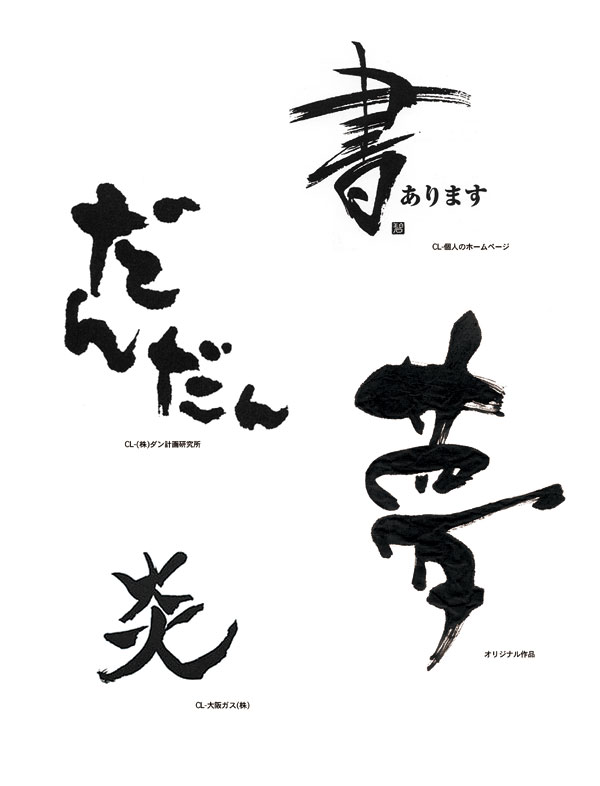 書
あります
碧
CL-個人のホームページ
だん
だん
CL-(株)ダン計画研究所
夢
オリジナル作品
炎
CL-大阪ガス(株)